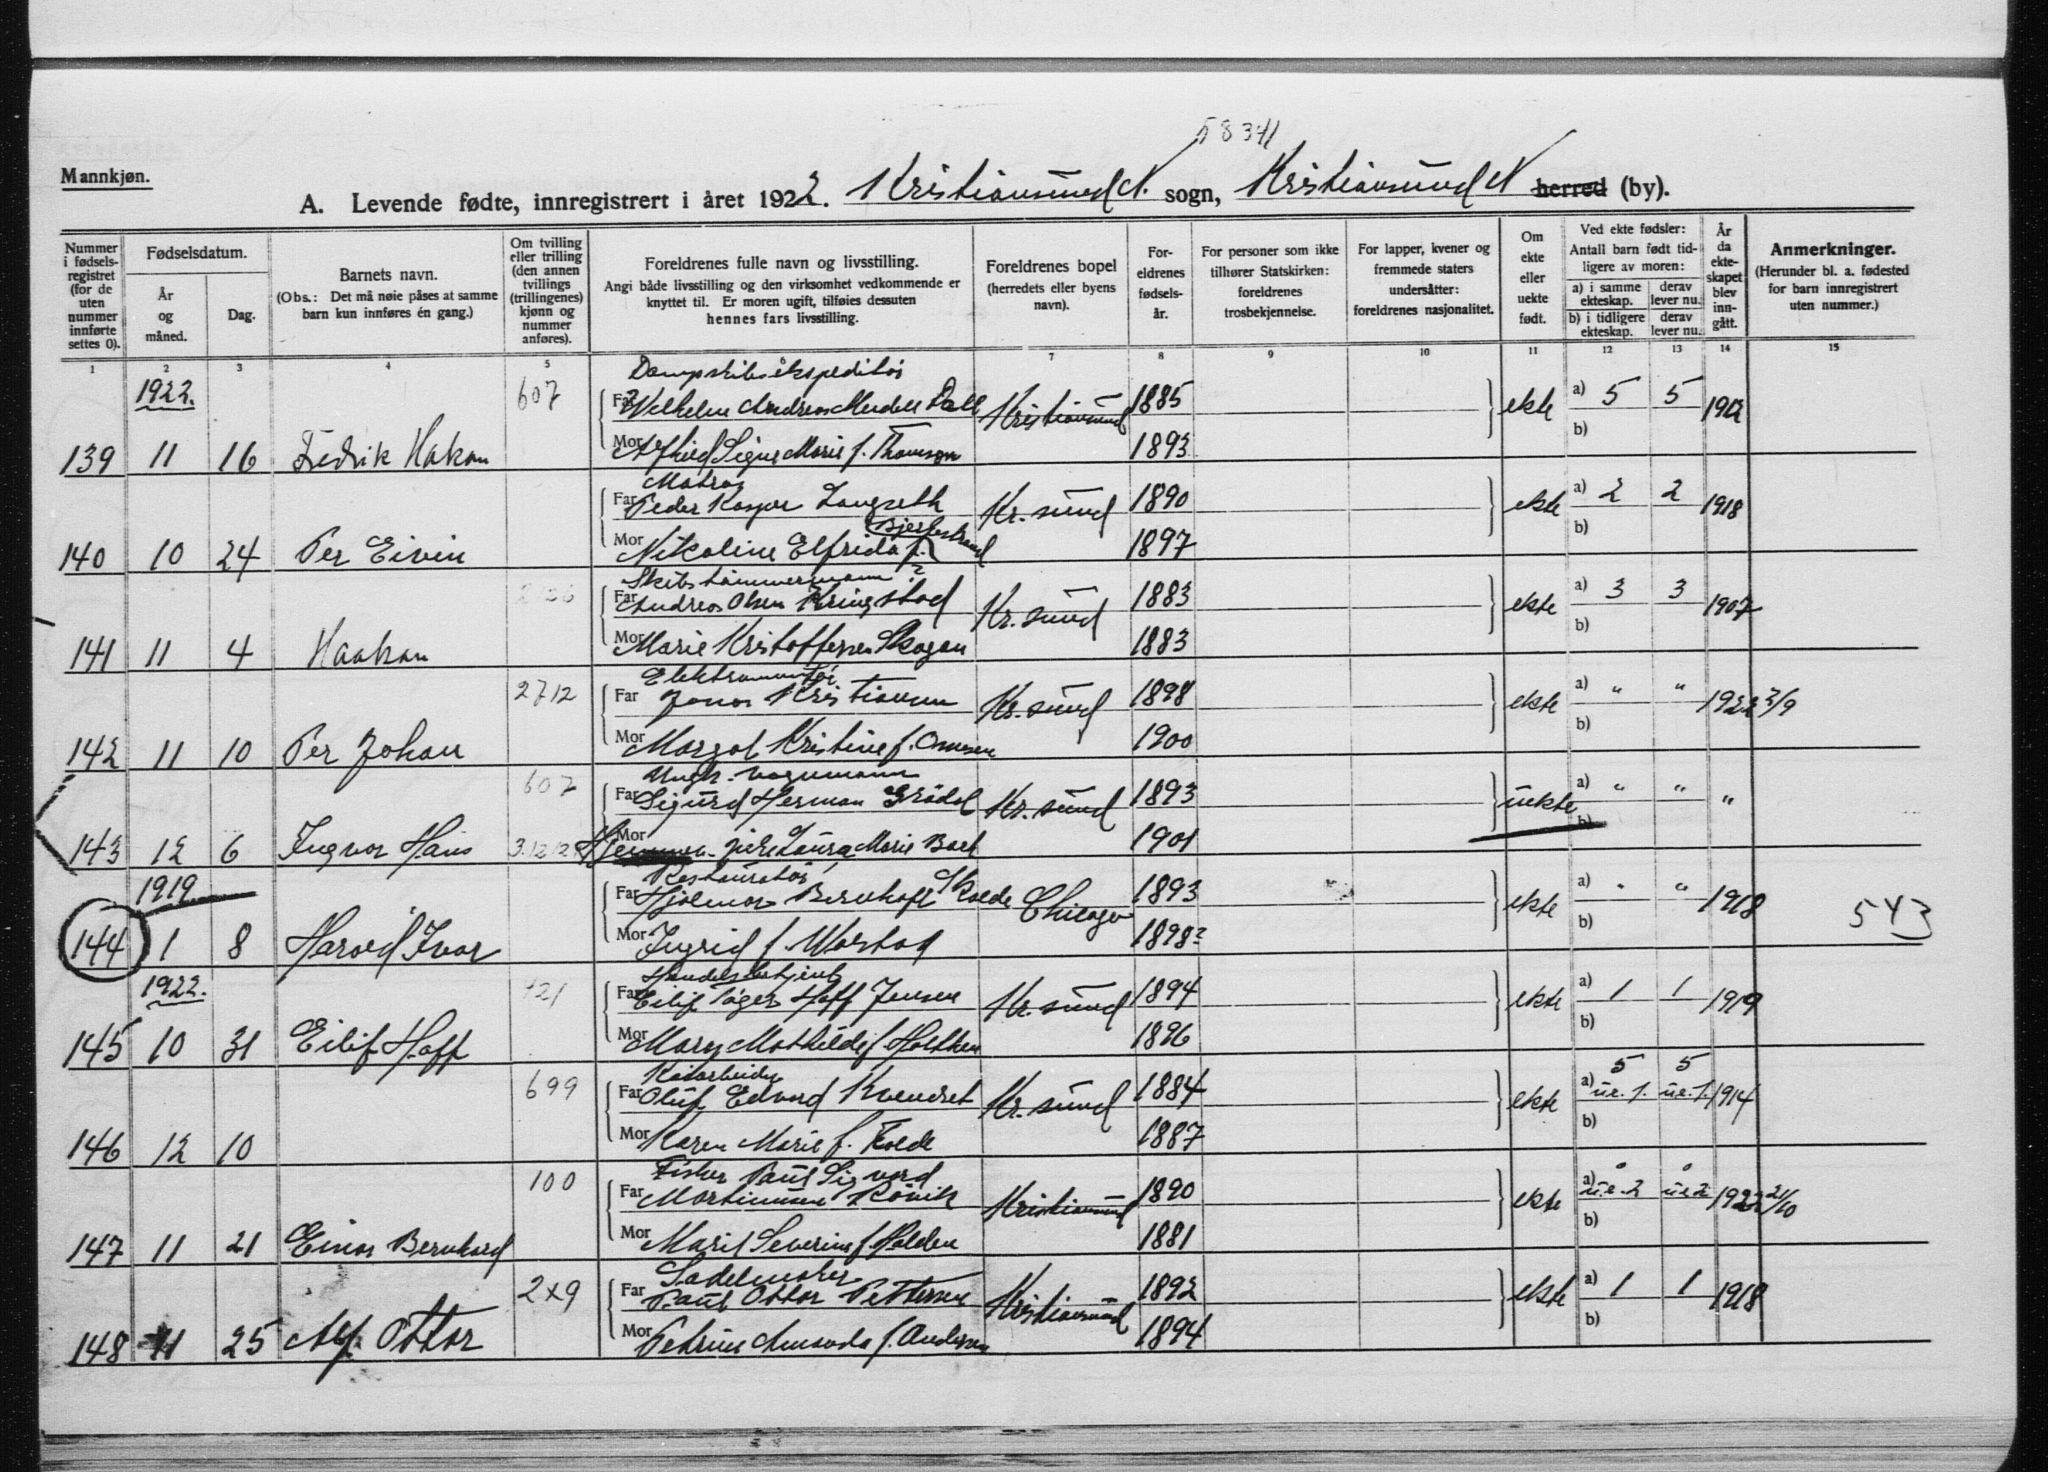 58341
Mannkjøn.
A. Levende fødte, innregistrert i året 1922. Kristiansund N. sogn, Kristiansund N herred (by).
Nummer i fødselsregistret (for de uten nummer innførte settes 0).
Fødselsdatum.
År og måned.
Dag.
Barnets navn.
(Obs.: Det må nøie påses at samme barn kun innføres én gang.)
Om tvilling eller trilling (den annen tvillings (trillingenes) kjønn og nummer anføres).
Foreldrenes fulle navn og livsstilling.
Angi både livsstilling og den virksomhet vedkommende er knyttet til. Er moren ugift, tilføies dessuten hennes fars livsstilling.
Foreldrenes bopel (herredets eller byens navn).
Foreldrenes fødselsår.
For personer som ikke tilhører Statskirken: foreldrenes trosbekjennelse.
For lapper, kvener og fremmede staters undersåtter: foreldrenes nasjonalitet.
Om ekte eller uekte født.
Ved ekte fødsler:
Antall barn født tidligere av moren:
a) i samme ekteskap.
derav lever nu.
b) i tidligere ekteskap.
derav lever nu.
År da ekteskapet blev inngått.
Anmerkninger.
(Herunder bl. a. fødested for barn innregistrert uten nummer.)
1 2 3 4 5 7 8 9 10 11 12 13 14 15
1922. 607 Dampskibsekspeditør
Far Vilhelm Andreas Dall Kristiansund 1885 ekte a) 5 5 1912
b)
139 11 16 Fredrik Hakon Mor Signe Marie f. Thomson 1893
Matros
Far Peder Kasper Langseth Kr. sund 1890 ekte a) 2 2 1918
b)
140 10 24 Per Eivin Mor Nikoline Elfrida f. Bjerkestrand 1897
Skibstømmermann ?
Far Andreas Olsen Kringstad Kr. sund 1883 ekte a) 3 3 1907
b)
141 11 4 Haakon Mor Marie Kristoffersen Skogan 1883
2712 Elektromontør
Far Jonas Kristiansen Kr. sund 1898 ekte a) " " 1922 2/9
b)
142 11 10 Per Johan Mor Margot Kristine f. 1900
607 Ungk.
Far Sigurd Herman Grødal Kr. sund 1893 uekte a) " " "
b)
143 12 6 Ingvar Hans Mor pike Laura Marie 1901
1919. Restauratør
Far Hjalmar Bernhoft Chicago 1893 ekte a) " " 1918
543
144 1 8 Harold Ivar Mor Ingrid f. 1898?
1922. 121 Handelsbetjent
Far Eilif Hoff Jensen Kr. sund 1894 ekte a) 1 1 1919
b)
145 10 31 Eilif Hoff Mor Mary Mathilde f. 1896
699
Far Oluf Edvard Kr. sund 1884 ekte a) 5 u.e. 1. 5 u.e. 1. 1914
b)
146 12 10 Mor Karen Marie f. 1887
100 Fisker Paul Sigvard
Far Martinusen Kristiansund 1890 ekte a) 0 u.e. 2 0 u.e. 2 1922 21/10
b)
147 11 21 Einar Bernhard Mor Marit f. Halden 1881
Sadelmaker
Far Paul Ottar Pettersen Kristiansund 1892 ekte a) 1 1 1918
b)
148 11 25 Alf Ottar Mor Petrine Amanda f. Andersen 1894